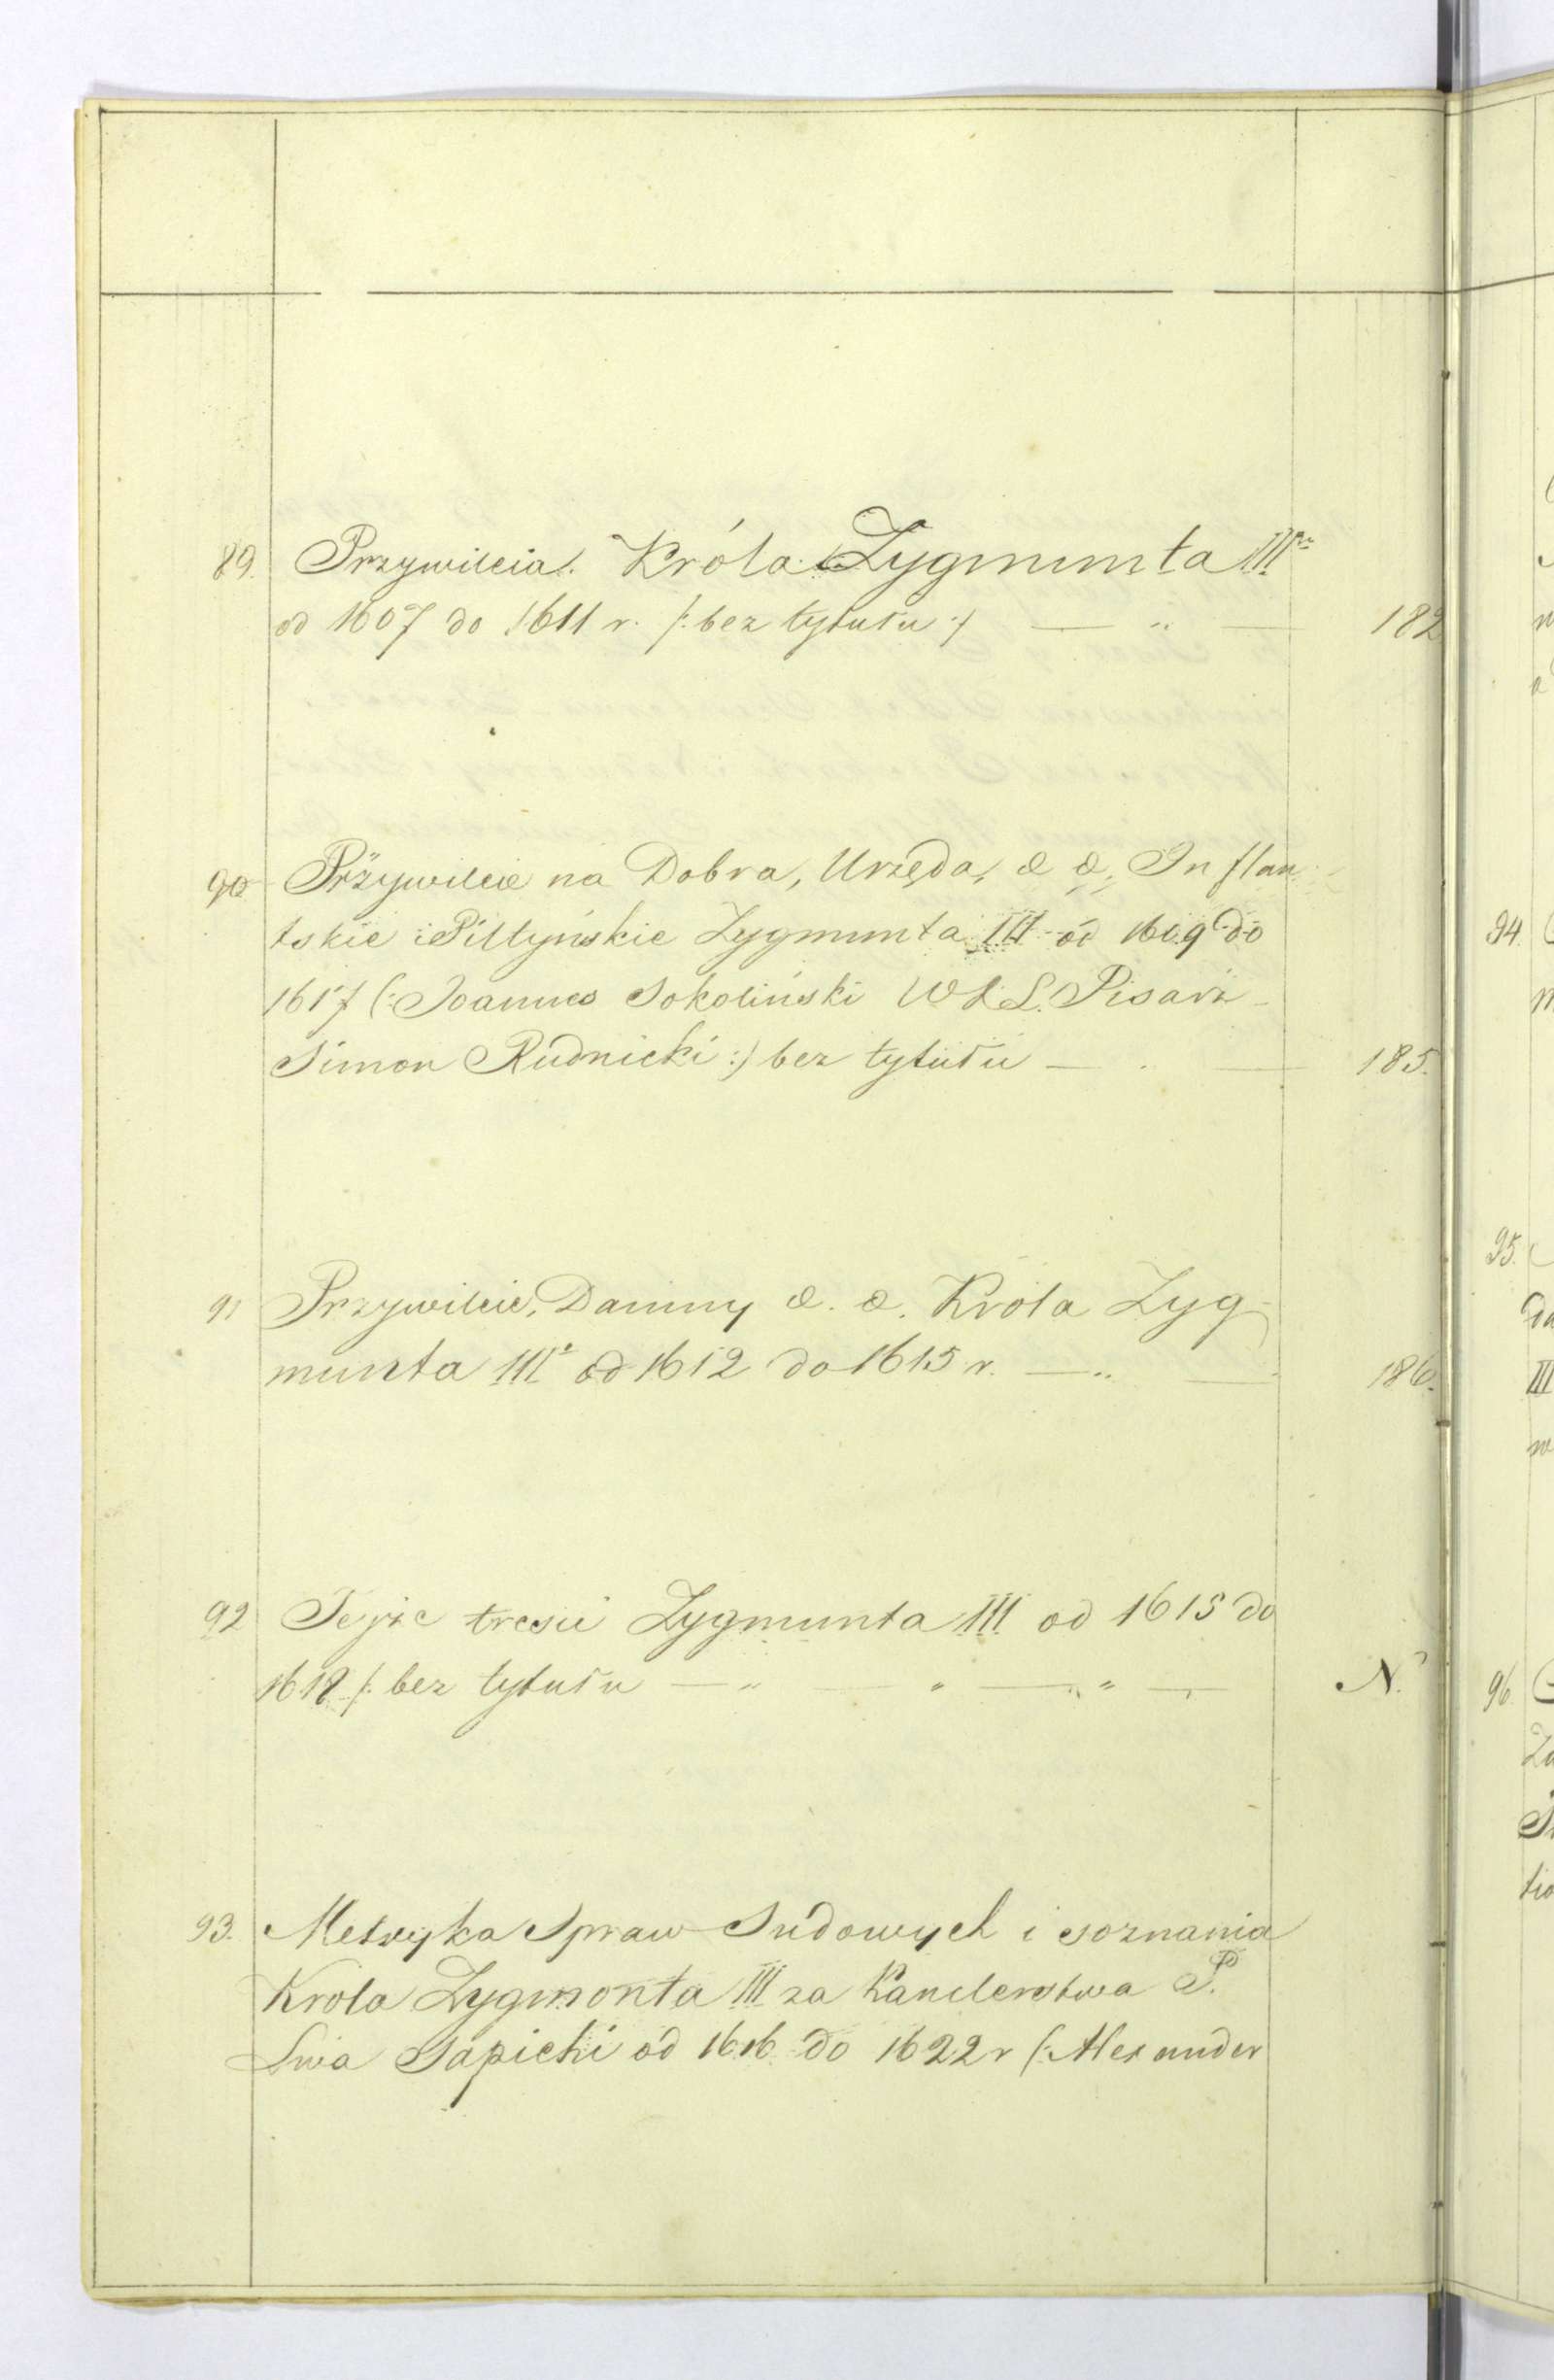 89. Przywileia. Króla Zygmunta III
od 1607 do 1611 r. /: bez tytułu :/ — " — 182
90 Przywileie na Dobra, Urzęda, & &, Inflan
tskie i Piltyńskie Zygmunta III od 1609 do
1617 (: Joannes Sokoliński W X L. Pisarz
Simon Rudnicki :) bez tytułu — . — 185.
91 Przywileie, Daniny &. &. Króla Zyg
munta III od 1612 do 1615 r. — " — 186.
92 Tejże tresci Zygmunta III od 1615 do
1618 /: bez tytułu — " — " — " — N.
93. Metryka Spraw Sudowych i soznania
Krola Zygmonta III za Kanclerstwa P.
Lwa Sapiehi od 1616 do 1622 r (: Alexander
94.
95.
96